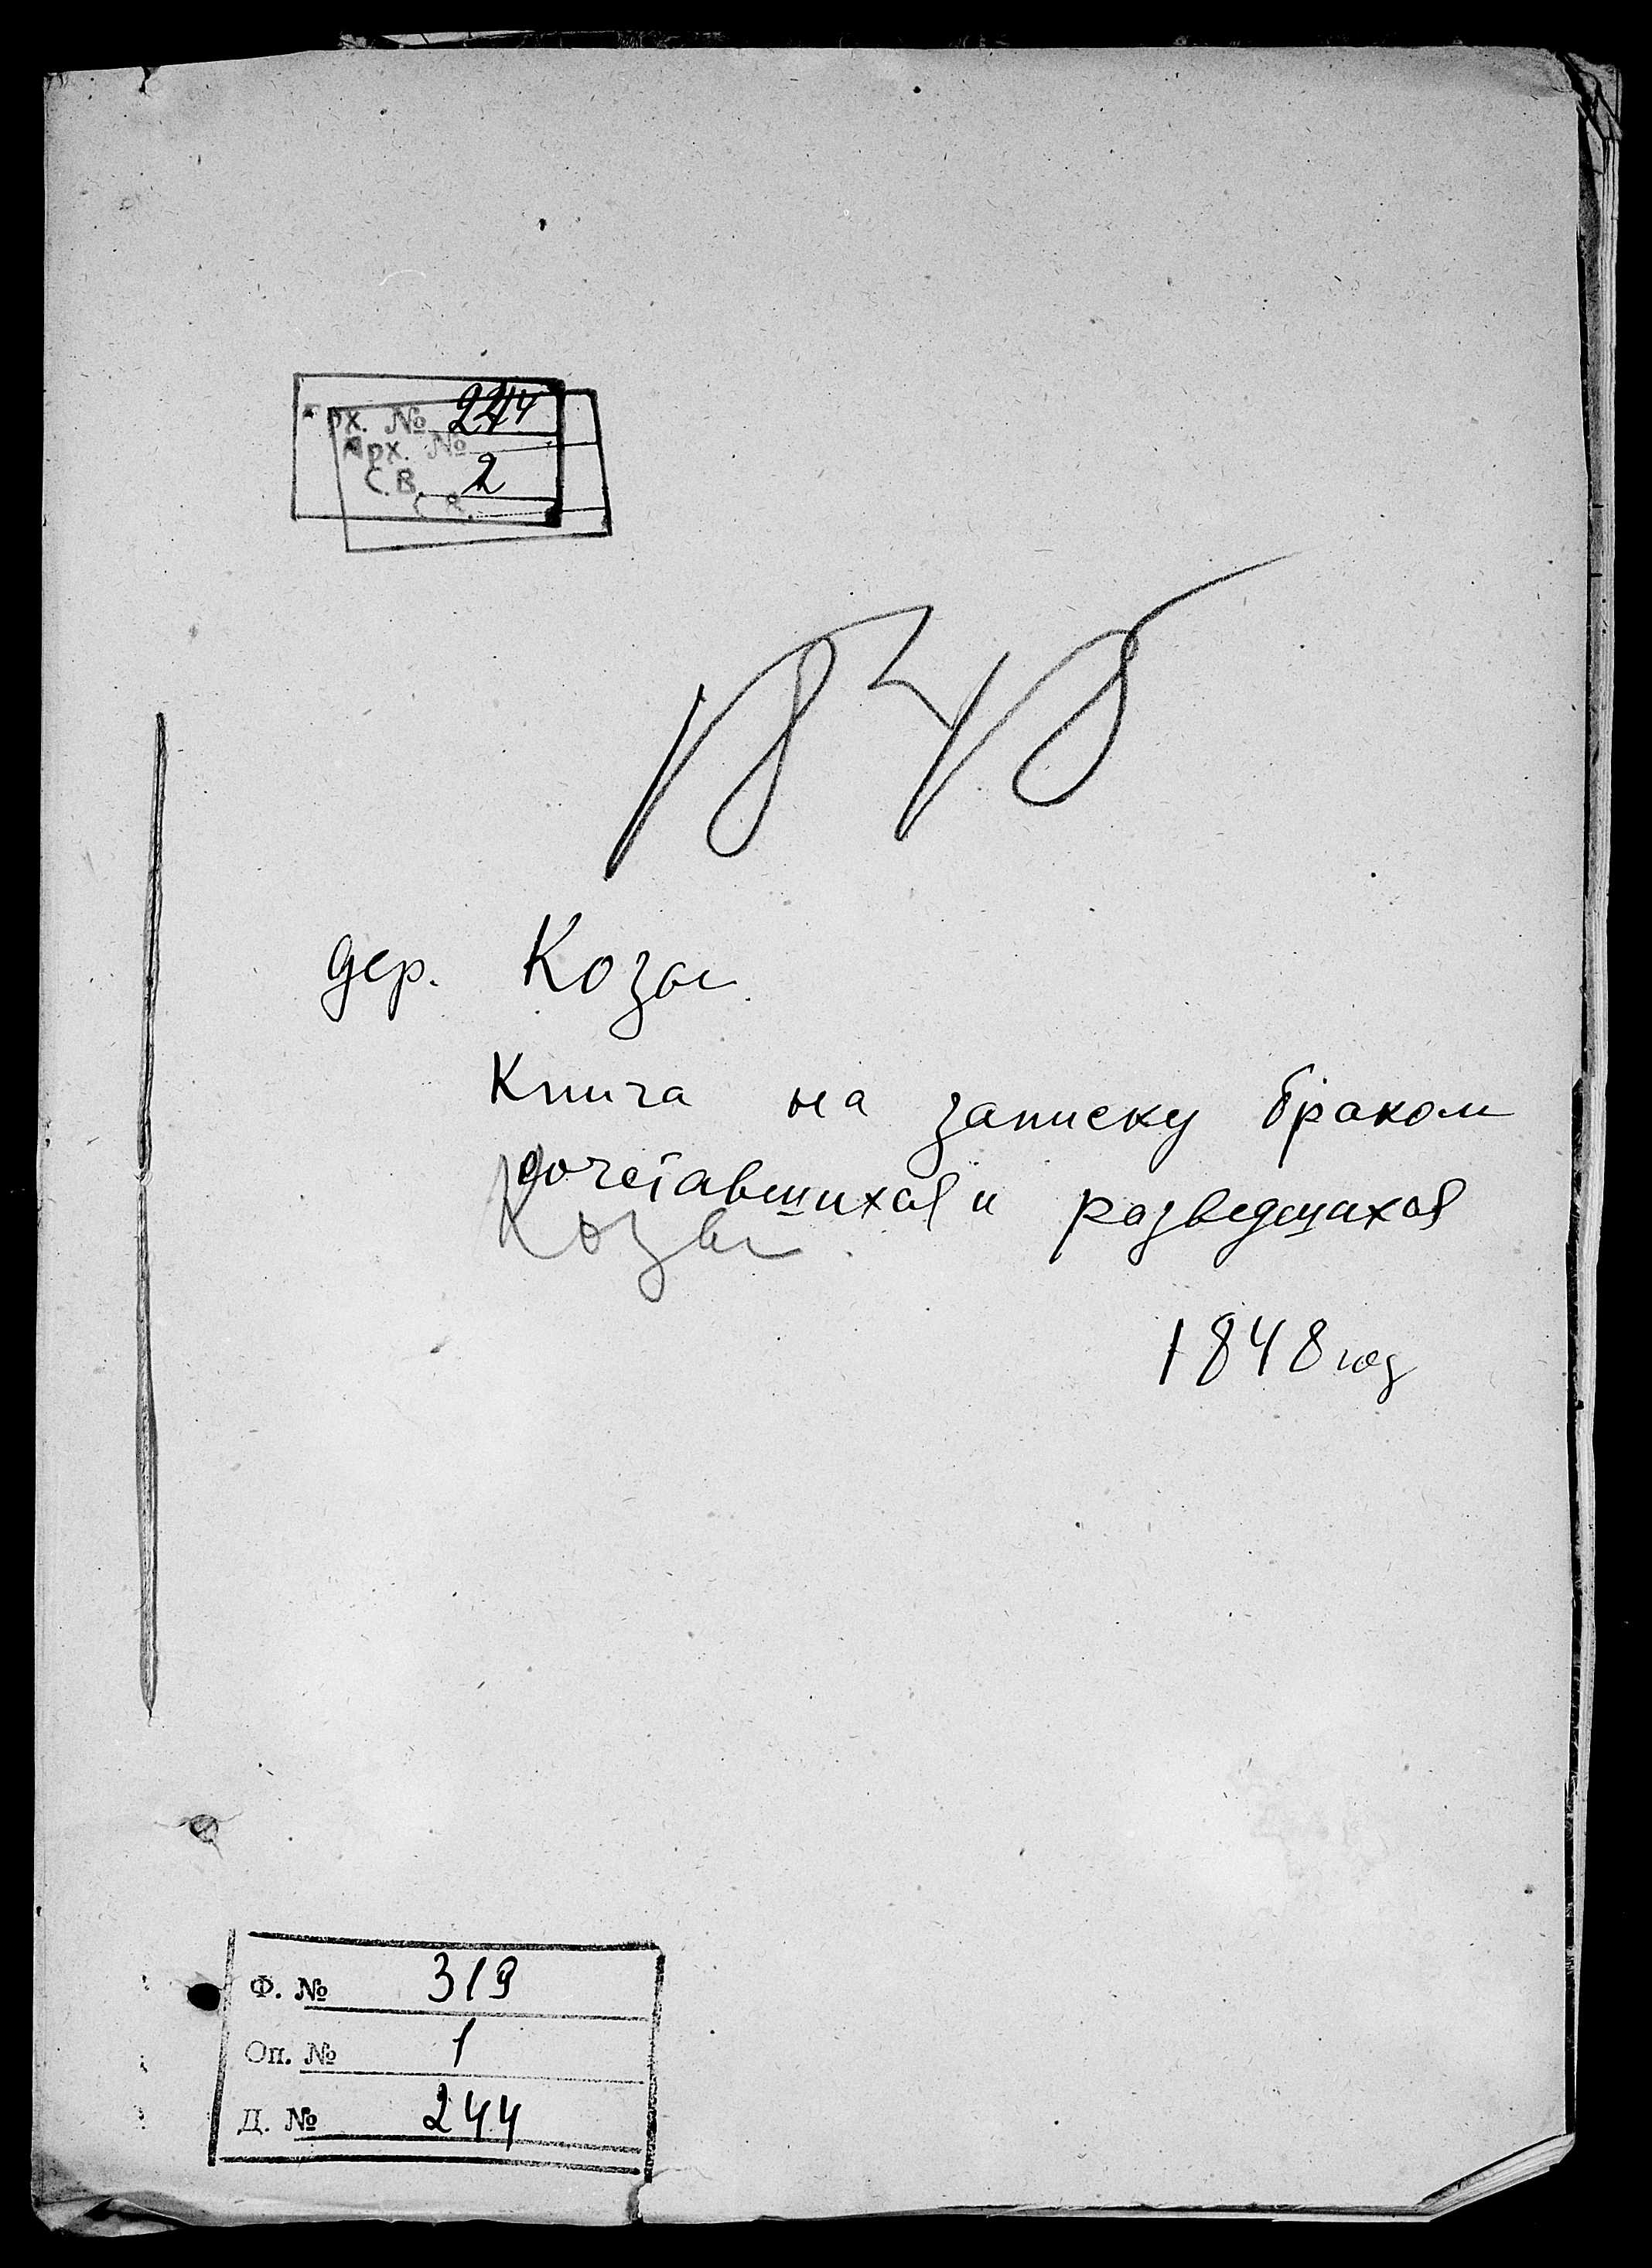 Арх. № 244
Арх. №
С.В. 2
С.В.
1848
дер. Козы
Книга на записку браком
сочетавшихся и разведшихся
Козы
1848 год
Ф. № 319
Оп. № 1
Д. № 244